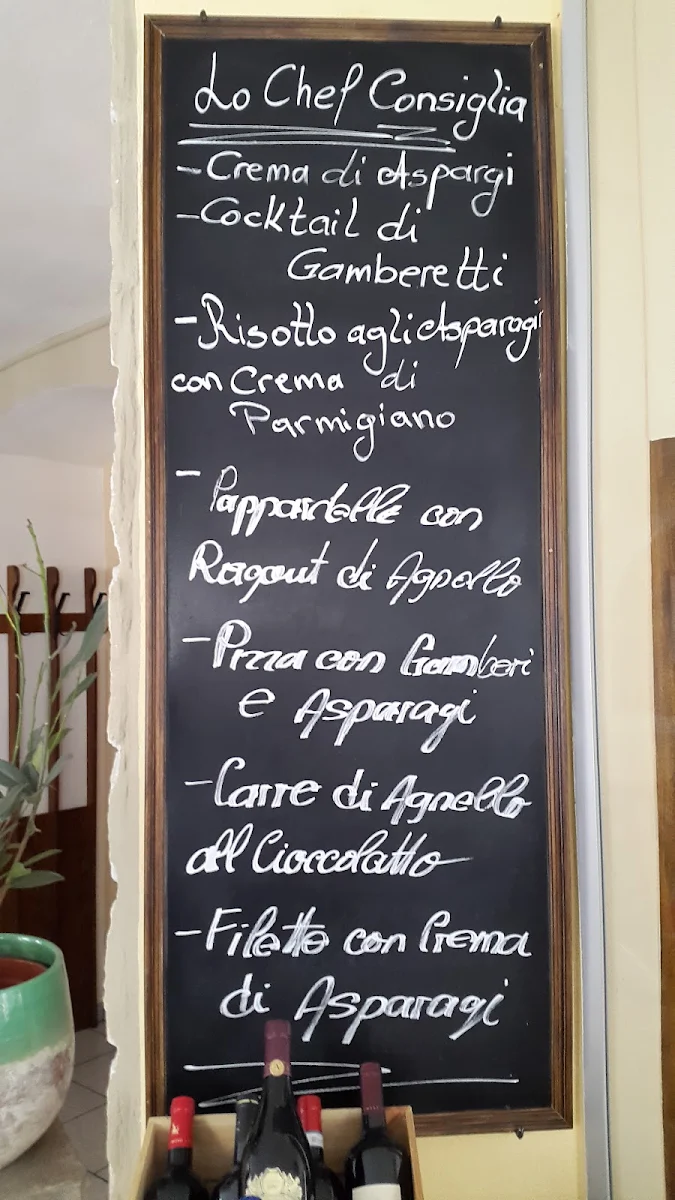 Lo Chef Consiglia
- Crema di Aspargi
- Cocktail di
Gamberetti
- Risotto agli Asparagi
con Crema di
Parmigiano
- Pappardelle con
Ragout di Agnello
- Pizza con Gamberi
e Asparagi
- Carre di Agnello
all Cioccolatto
- Filetto con Crema
di Asparagi